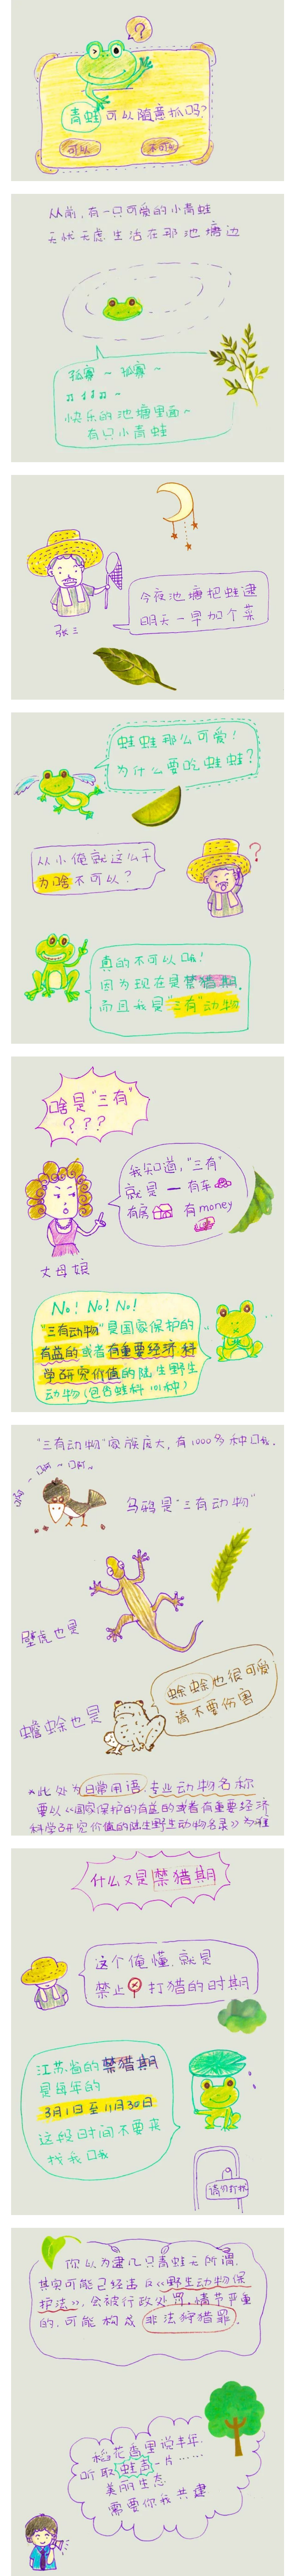 ?
青蛙可以随意抓吗?
可以
不可以
从前,有一只可爱的小青蛙
无忧无虑生活在那池塘边
孤寡~孤寡~
快乐的池塘里面~
有只小青蛙
张三
今夜池塘把蛙逮
明天一早加个菜
蛙蛙那么可爱!
为什么要吃蛙蛙?
从小俺就这么干
为啥不可以?
?
真的不可以哦!
因为现在是禁猎期.
而且我是"三有"动物
啥是"三有"
???
我知道,"三有"
就是一有车
有房 有money
丈母娘
No! No! No!
"三有动物"是国家保护的
有益的或者有重要经济科
学研究价值的陆生野生
动物(包含蛙科101种)
"三有动物"家族庞大,有1000多种哦.
乌鸦是"三有动物"
壁虎也是
蟾蜍也是
蛤蛤也很可爱
请不要伤害
*此处为日常用语,专业动物名称
要以《国家保护的有益的或者有重要经济
科学研究价值的陆生野生动物名录》为准
什么又是禁猎期
这个俺懂.就是
禁止打猎的时期
江苏省的禁猎期
是每年的
3月1日至11月30日
这段时间不要来
找我哦
请勿打扰
你以为逮几只青蛙无所谓
其实可能已经违反《野生动物保
护法》,会被行政处罚.情节严重
的,可能构成非法狩猎罪.
稻花香里说丰年.
听取蛙声一片……
美丽生态
需要你我共建